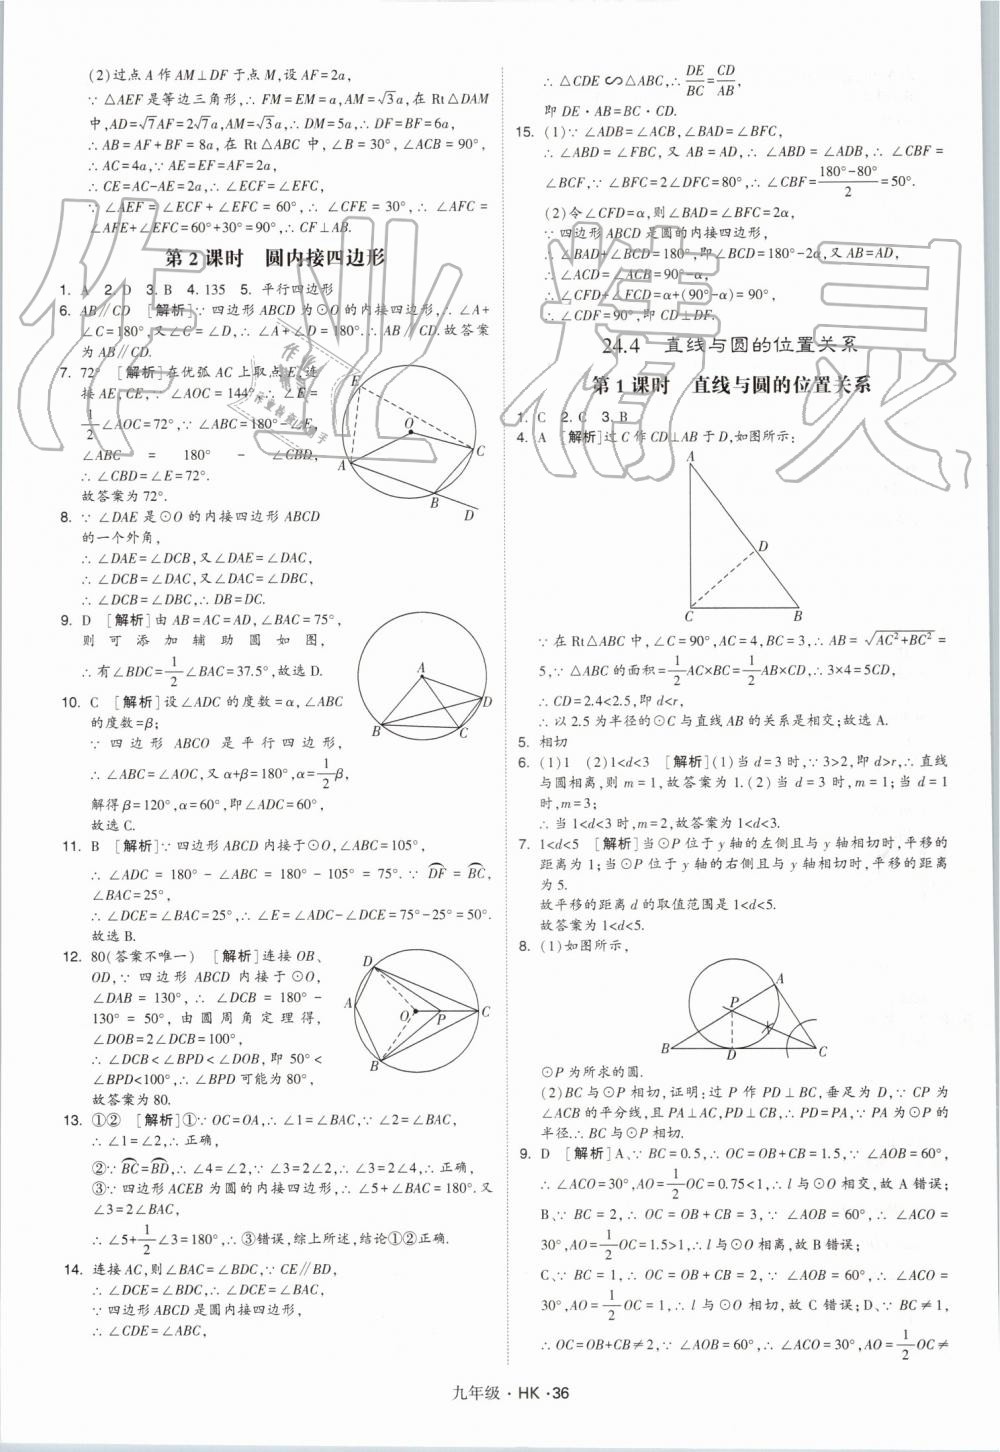 (2)过点A作AM⊥DF于点M,设AF=2a,
∵△AEF是等边三角形,∴FM=EM=a,AM=√3a,在Rt△DAM
中,AD=√7AF=2√7a,AM=√3a,∴DM=5a,∴DF=BF=6a,
∴AB=AF+BF=8a,在Rt△ABC中,∠B=30°,∠ACB=90°,
∴AC=4a,∵AE=EF=AF=2a,
∴CE=AC-AE=2a,∴∠ECF=∠EFC,
∵∠AEF=∠ECF+∠EFC=60°,∴∠CFE=30°,∴∠AFC=
∠AFE+∠EFC=60°+30°=90°,∴CF⊥AB.
第2课时 圆内接四边形
1. A 2. D 3. B 4. 135 5. 平行四边形
6. AB∥CD [解析]∵四边形ABCD为⊙O的内接四边形,∴∠A+
∠C=180°,又∠C=∠D,∴∠A+∠D=180°.∴AB∥CD.故答案
为AB∥CD.
7. 72° [解析]在优弧AC上取点E,连
接AE,CE,∵∠AOC=144°∴∠E=
1/2∠AOC=72°,∵∠ABC=180°-∠E,
∠ABC = 180° - ∠CBD,
∴∠CBD=∠E=72°.
故答案为72°.
8. ∵∠DAE是⊙O的内接四边形ABCD
的一个外角,
∴∠DAE=∠DCB,又∠DAE=∠DAC,
∴∠DCB=∠DAC,又∠DAC=∠DBC,
∴∠DCB=∠DBC,∴DB=DC.
9. D [解析]由AB=AC=AD,∠BAC=75°,
则可添加辅助圆如图,
∴有∠BDC=1/2∠BAC=37.5°,故选D.
10. C [解析]设∠ADC的度数=α,∠ABC
的度数=β;
∵四边形ABCO是平行四边形,
∴∠ABC=∠AOC,又α+β=180°,α=1/2β,
解得β=120°,α=60°,即∠ADC=60°,
故选C.
11. B [解析]∵四边形ABCD内接于⊙O,∠ABC=105°,
∴∠ADC=180°-∠ABC=180°-105°=75°.∵DF=BC,
∠BAC=25°,
∴∠DCE=∠BAC=25°,∴∠E=∠ADC-∠DCE=75°-25°=50°.
故选B.
12. 80(答案不唯一) [解析]连接OB、
OD,∵四边形ABCD内接于⊙O,
∠DAB=130°,∴∠DCB=180°-
130°=50°,由圆周角定理得,
∠DOB=2∠DCB=100°,
∴∠DCB<∠BPD<∠DOB,即50°<
∠BPD<100°,∴∠BPD可能为80°,
故答案为80.
13. ①② [解析]①∵OC=OA,∴∠1=∠BAC,∵∠2=∠BAC,
∴∠1=∠2,∴正确,
②∵BC=BD,∴∠4=∠2,∵∠3=2∠2,∴∠3=2∠4,∴正确,
③∵四边形ACEB为圆的内接四边形,∴∠5+∠BAC=180°.又
∠3=2∠BAC,
∴∠5+1/2∠3=180°,∴③错误,综上所述,结论①②正确.
14. 连接AC,则∠BAC=∠BDC,∵CE∥BD,
∴∠DCE=∠BDC,∴∠DCE=∠BAC,
∵四边形ABCD是圆内接四边形,
∴∠CDE=∠ABC,
∴△CDE∽△ABC,∴DE/BC=CD/AB,
即DE·AB=BC·CD.
15. (1)∵∠ADB=∠ACB,∠BAD=∠BFC,
∴∠ABD=∠FBC,又AB=AD,∴∠ABD=∠ADB,∴∠CBF=
∠BCF,∵∠BFC=2∠DFC=80°,∴∠CBF=(180°-80°)/2=50°.
(2)令∠CFD=α,则∠BAD=∠BFC=2α,
∵四边形ABCD是圆的内接四边形,
∴∠BAD+∠BCD=180°,即∠BCD=180°-2α,又AB=AD,
∴∠ACD=∠ACB=90°-α,
∴∠CFD+∠FCD=α+(90°-α)=90°,
∴∠CDF=90°,即CD⊥DF.
24.4 直线与圆的位置关系
第1课时 直线与圆的位置关系
1. C 2. C 3. B
4. A [解析]过C作CD⊥AB于D,如图所示:
∵在Rt△ABC中,∠C=90°,AC=4,BC=3,∴AB=√AC²+BC²=
5,∵△ABC的面积=1/2AC×BC=1/2AB×CD,∴3×4=5CD,
∴CD=2.4<2.5,即d<r,
∴以2.5为半径的⊙C与直线AB的关系是相交;故选A.
5. 相切
6. (1)1 (2)1<d<3 [解析](1)当d=3时,∵3>2,即d>r,∴直线
与圆相离,则m=1,故答案为1.(2)当d=3时,m=1;当d=1
时,m=3;
∴当1<d<3时,m=2,故答案为1<d<3.
7. 1<d<5 [解析]当⊙P位于y轴的左侧且与y轴相切时,平移的
距离为1;当⊙P位于y轴的右侧且与y轴相切时,平移的距离
为5.
故平移的距离d的取值范围是1<d<5.
故答案为1<d<5.
8. (1)如图所示,
⊙P为所求的圆.
(2)BC与⊙P相切,证明:过P作PD⊥BC,垂足为D,∵CP为
∠ACB的平分线,且PA⊥AC,PD⊥CB,∴PD=PA,∵PA为⊙P的
半径.∴BC与⊙P相切.
9. D [解析]A、∵BC=0.5,∴OC=OB+CB=1.5,∵∠AOB=60°,
∴∠ACO=30°,AO=1/2OC=0.75<1,∴l与⊙O相交,故A错误;
B、∵BC=2,∴OC=OB+CB=3,∵∠AOB=60°,∴∠ACO=
30°,AO=1/2OC=1.5>1,∴l与⊙O相离,故B错误;
C、∵BC=1,∴OC=OB+CB=2,∵∠AOB=60°,∴∠ACO=
30°,AO=1/2OC=1,∴l与⊙O相切,故C错误;D、∵BC≠1,
∴OC=OB+CB≠2,∵∠AOB=60°,∴∠ACO=30°,AO=1/2OC≠
九年级·HK·36